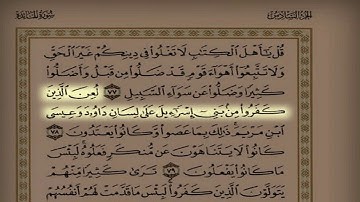 الجزء السادس سورة المائدة
قُلْ يَٰٓأَهْلَ ٱلْكِتَٰبِ لَا تَغْلُوا۟ فِى دِينِكُمْ غَيْرَ ٱلْحَقِّ
وَلَا تَتَّبِعُوٓا۟ أَهْوَآءَ قَوْمٍ قَدْ ضَلُّوا۟ مِن قَبْلُ وَأَضَلُّوا۟
كَثِيرًا وَضَلُّوا۟ عَن سَوَآءِ ٱلسَّبِيلِ ٧٧ لُعِنَ ٱلَّذِينَ
كَفَرُوا۟ مِنۢ بَنِىٓ إِسْرَٰٓءِيلَ عَلَىٰ لِسَانِ دَاوُۥدَ وَعِيسَى
ٱبْنِ مَرْيَمَ ذَٰلِكَ بِمَا عَصَوا۟ وَّكَانُوا۟ يَعْتَدُونَ ٧٨
كَانُوا۟ لَا يَتَنَاهَوْنَ عَن مُّنكَرٍ فَعَلُوهُ لَبِئْسَ
مَا كَانُوا۟ يَفْعَلُونَ ٧٩ تَرَىٰ كَثِيرًا مِّنْهُمْ
يَتَوَلَّوْنَ ٱلَّذِينَ كَفَرُوا۟ لَبِئْسَ مَا قَدَّمَتْ لَهُمْ أَنفُسُهُمْ